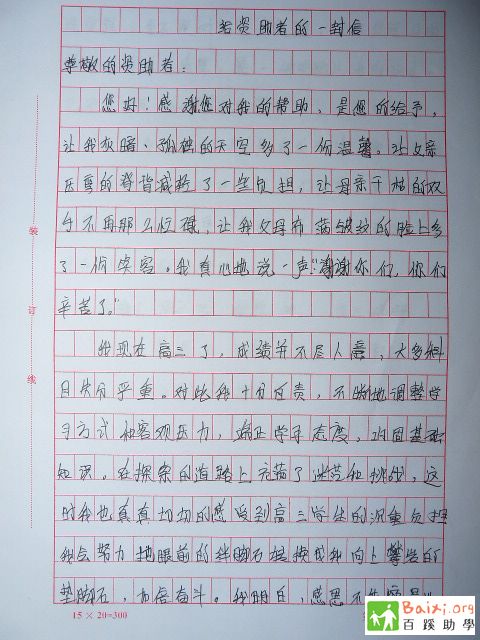 给资助者的一封信
尊敬的资助者:
您好!感谢您对我的帮助,是您的给予,
让我灰暗、孤独的天空多了一份温馨。让父亲
压弯的脊背减轻了一些负担,让母亲干枯的双
手不再那么,让我父母布满皱纹的脸上多
了一份笑容。我真心地说一声“谢谢你们,你们
辛苦了。”
我现在高三了,成绩并不尽人意,大多科
目失分严重。对此我十分自责,不断地调整学
习方式和客观压力,端正学习态度,巩固基础
知识。在探索的道路上充满了迷茫和挑战,这
时我也真真切切的感受到高三学生的沉重负担
我会努力地眼前的绊脚石换成我向上攀登的
垫脚石,加倍奋斗。我明白,感恩不
装
订
线
15×20=300
Baixi.org
百蹊助學